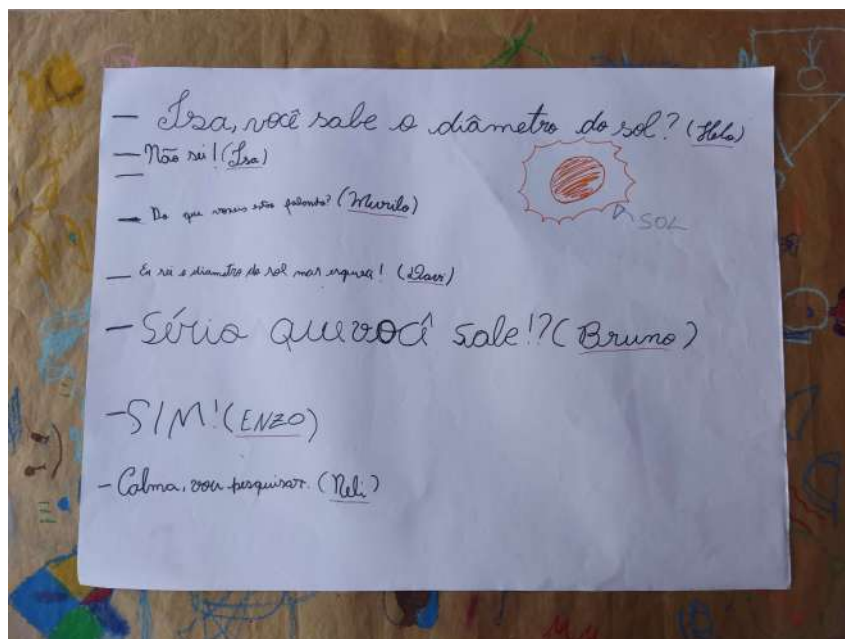 — Isa, você sabe o diâmetro do sol? (Helo)
— Não sei! (Isa)
— Do que voceis estão falando? (Murilo)
SOL
— Eu sei o diametro do sol mas esqueci! (Davi)
— Sério que você sabe!? (Bruno)
— SIM! (ENZO)
— Calma, vou pesquisar. (Neli)